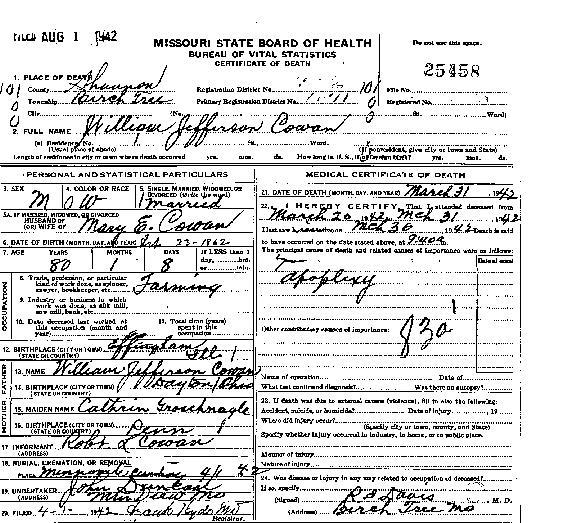 FILED AUG 1 1942
MISSOURI STATE BOARD OF HEALTH
BUREAU OF VITAL STATISTICS
CERTIFICATE OF DEATH
Do not use this space.
25458
1. PLACE OF DEATH
County Shannon Registration District No. File No.
Township Birch Tree Primary Registration District No. Registered No.
City (No. St. Ward)
2. FULL NAME William Jefferson Cowan
(a) Residence, No. St. Ward.
(Usual place of abode) (If nonresident, give city or town and State)
Length of residence in city or town where death occurred yrs. mos. ds. How long in U. S., if of foreign birth? yrs. mos. ds.
PERSONAL AND STATISTICAL PARTICULARS
3. SEX M
4. COLOR OR RACE W
5. SINGLE, MARRIED, WIDOWED, OR DIVORCED (write the word) Married
5A. IF MARRIED, WIDOWED, OR DIVORCED
HUSBAND OF (OR) WIFE OF Mary E. Cowan
6. DATE OF BIRTH (MONTH, DAY, AND YEAR) 23-1862
7. AGE YEARS MONTHS DAYS If LESS than 1 day, hrs. or min.
80 1 8
OCCUPATION
8. Trade, profession, or particular kind of work done, as spinner, sawyer, bookkeeper, etc. Farming
9. Industry or business in which work was done, as silk mill, saw mill, bank, etc.
10. Date deceased last worked at this occupation (month and year)
11. Total time (years) spent in this occupation
12. BIRTHPLACE (CITY OR TOWN) Effingham
(STATE OR COUNTRY) Ill
FATHER
13. NAME William Jefferson Cowan
14. BIRTHPLACE (CITY OR TOWN) Dayton Ohio
(STATE OR COUNTRY)
MOTHER
15. MAIDEN NAME Cathrin
16. BIRTHPLACE (CITY OR TOWN)
(STATE OR COUNTRY) Penn
17. INFORMANT Robt L Cowan
(ADDRESS)
18. BURIAL, CREMATION, OR REMOVAL
PLACE 4/1 42
19. UNDERTAKER John Duncan
(ADDRESS) Mo
20. FILED 4- 1942
Registrar.
MEDICAL CERTIFICATE OF DEATH
21. DATE OF DEATH (MONTH, DAY, AND YEAR) March 31 1942
22. I HEREBY CERTIFY, That I attended deceased from
March 20 1942, Mch 31 1942
I last saw Mch 30 1942 Death is said
to have occurred on the date stated above, at
The principal cause of death and related causes of importance were as follows:
Date of onset
Apoplexy
Other contributory causes of importance:
83a
Name of operation Date of
What test confirmed diagnosis? Was there an autopsy?
23. If death was due to external causes (violence), fill in also the following:
Accident, suicide, or homicide? Date of injury 19
Where did injury occur?
(Specify city or town, county, and State)
Specify whether injury occurred in industry, in home, or in public place.
Manner of injury
Nature of injury
24. Was disease or injury in any way related to occupation of deceased?
If so, specify
(Signed) Davis M. D.
(Address) Birch Tree Mo